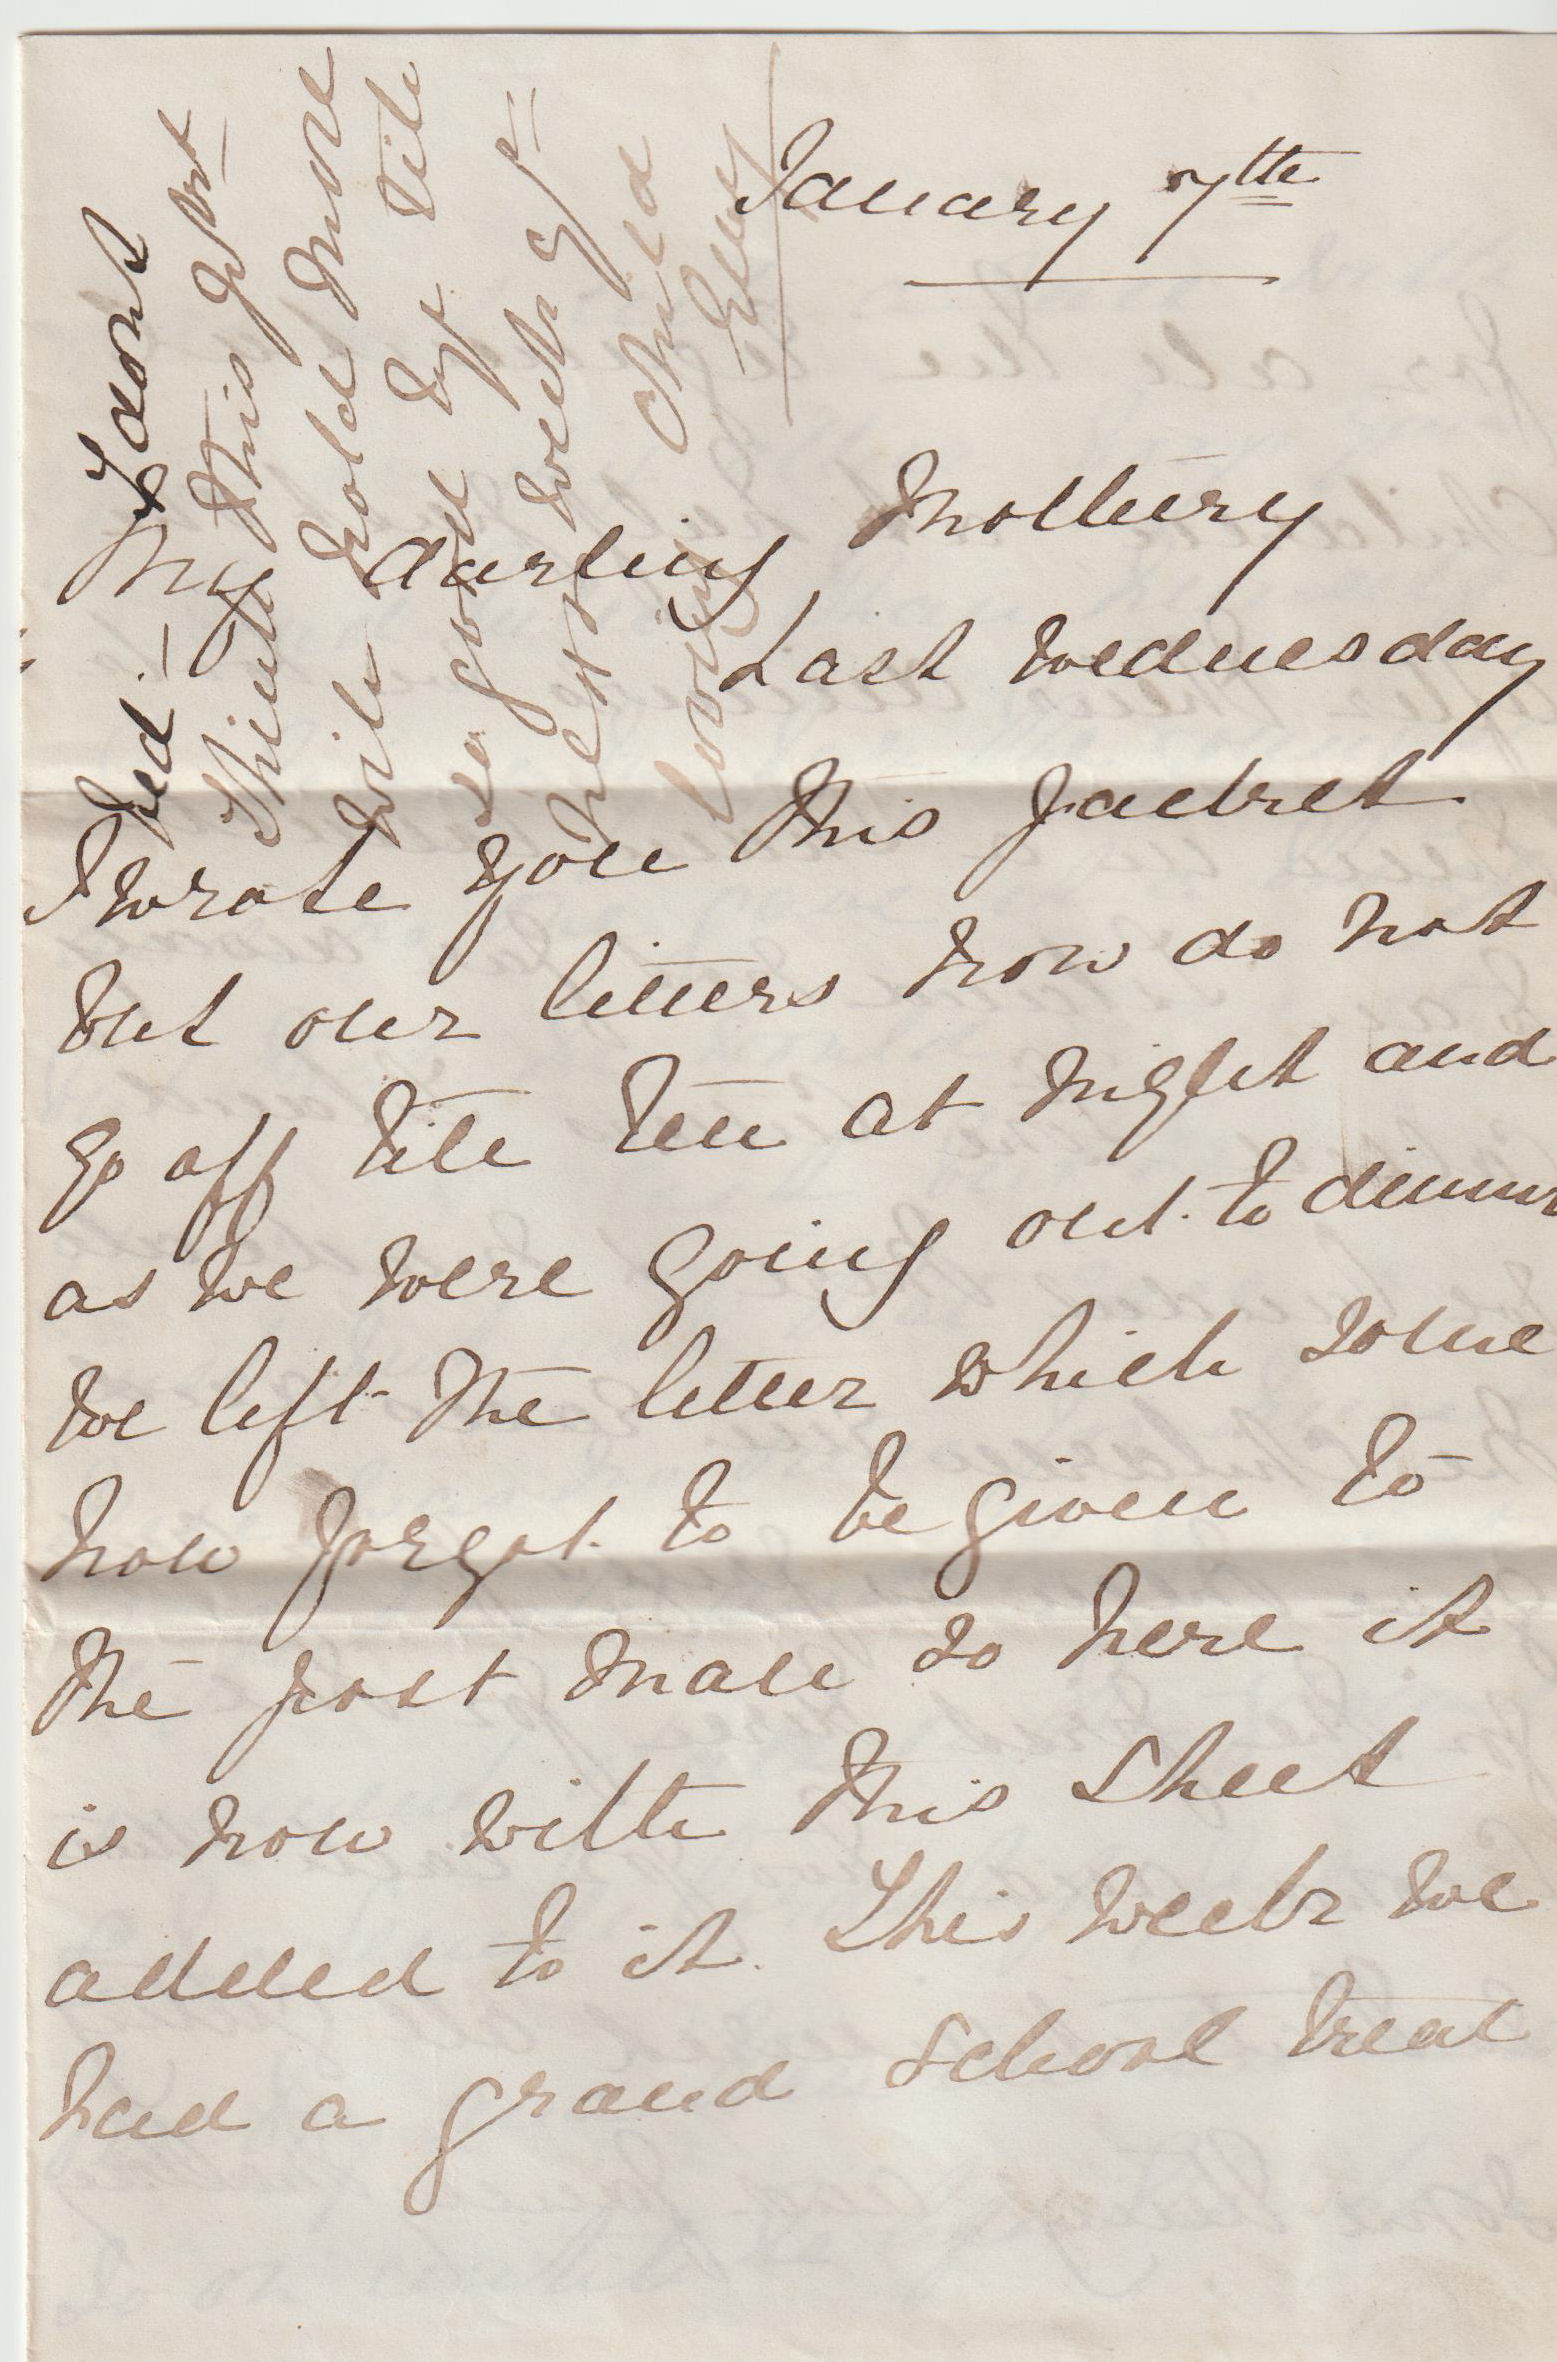 January 7th
My darling Mothery
Last Wednesday
I wrote you this packet
but our letters now do not
go off till ten at night and
as we were going out to dinner
we left the letter which some
how forgot to be given to
the post man so here it
is now with this sheet
added to it. This week we
had a grand school treat
I dont
think this
will hold more
so good bye till
next week yr
loving child